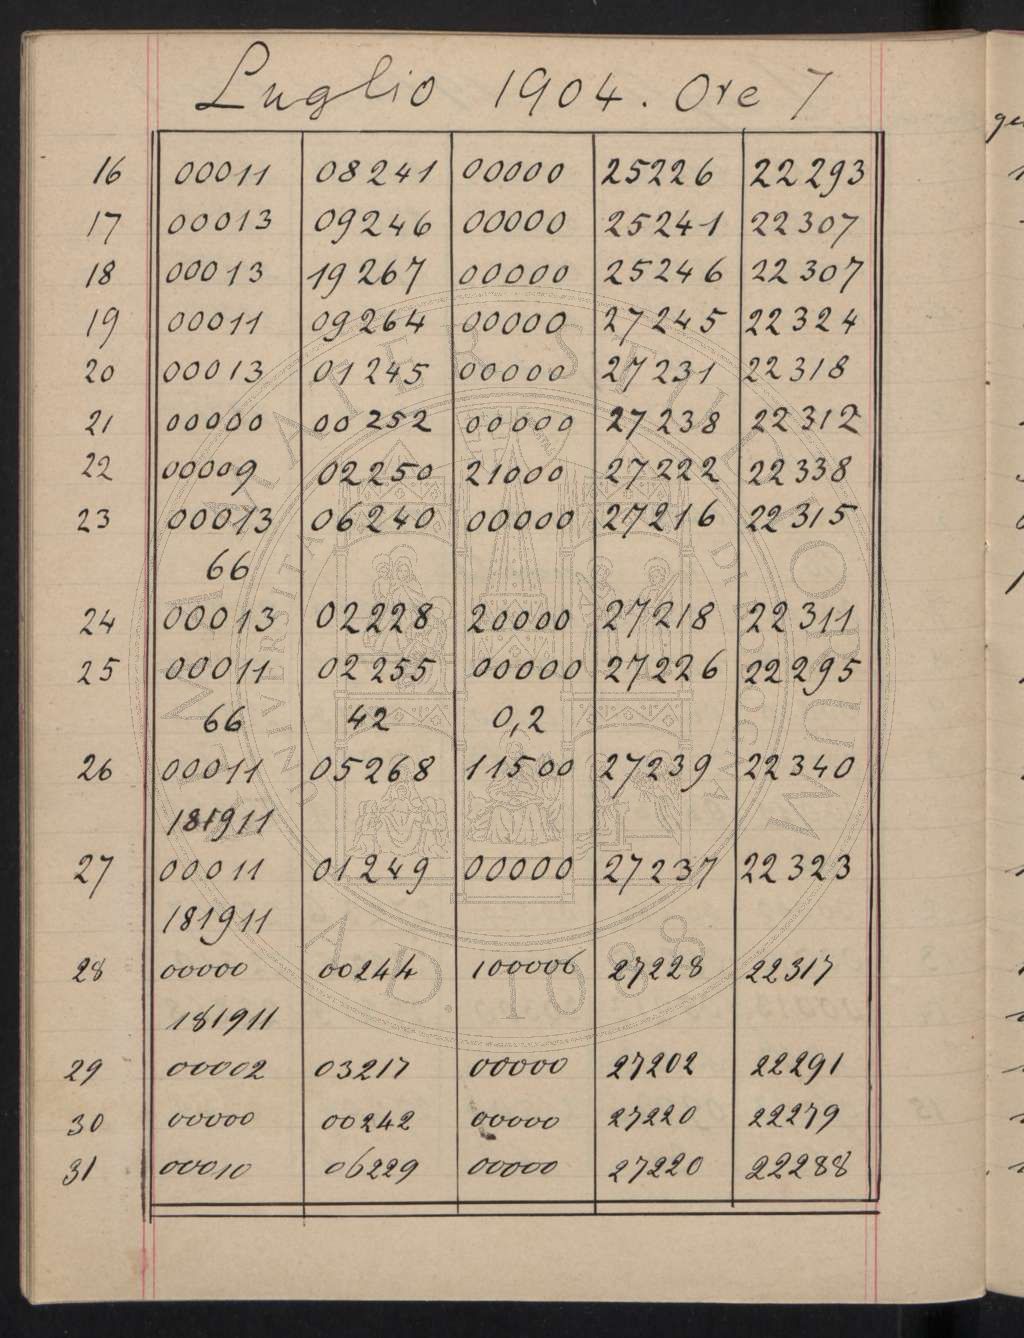 Luglio 1904. Ore 7
16 00011 08241 00000 25226 22293
17 00013 09246 00000 25241 22307
18 00013 19267 00000 25246 22307
19 00011 09264 00000 27245 22324
20 00013 01245 00000 27231 22318
21 00000 00252 00000 27238 22312
22 00009 02250 21000 27222 22338
23 00013 06240 00000 27216 22315
66
24 00013 02228 20000 27218 22311
25 00011 02255 00000 27226 22295
66 42 0,2
26 00011 05268 11500 27239 22340
181911
27 00011 01249 00000 27237 22323
181911
28 00000 00244 100006 27228 22317
181911
29 00002 03217 00000 27202 22291
30 00000 00242 00000 27220 22279
31 00010 06229 00000 27220 22288